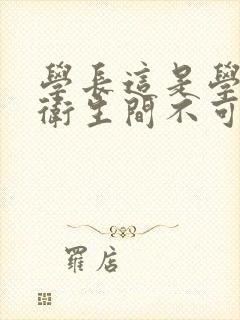 學長這是學
衛生間不可
羅店